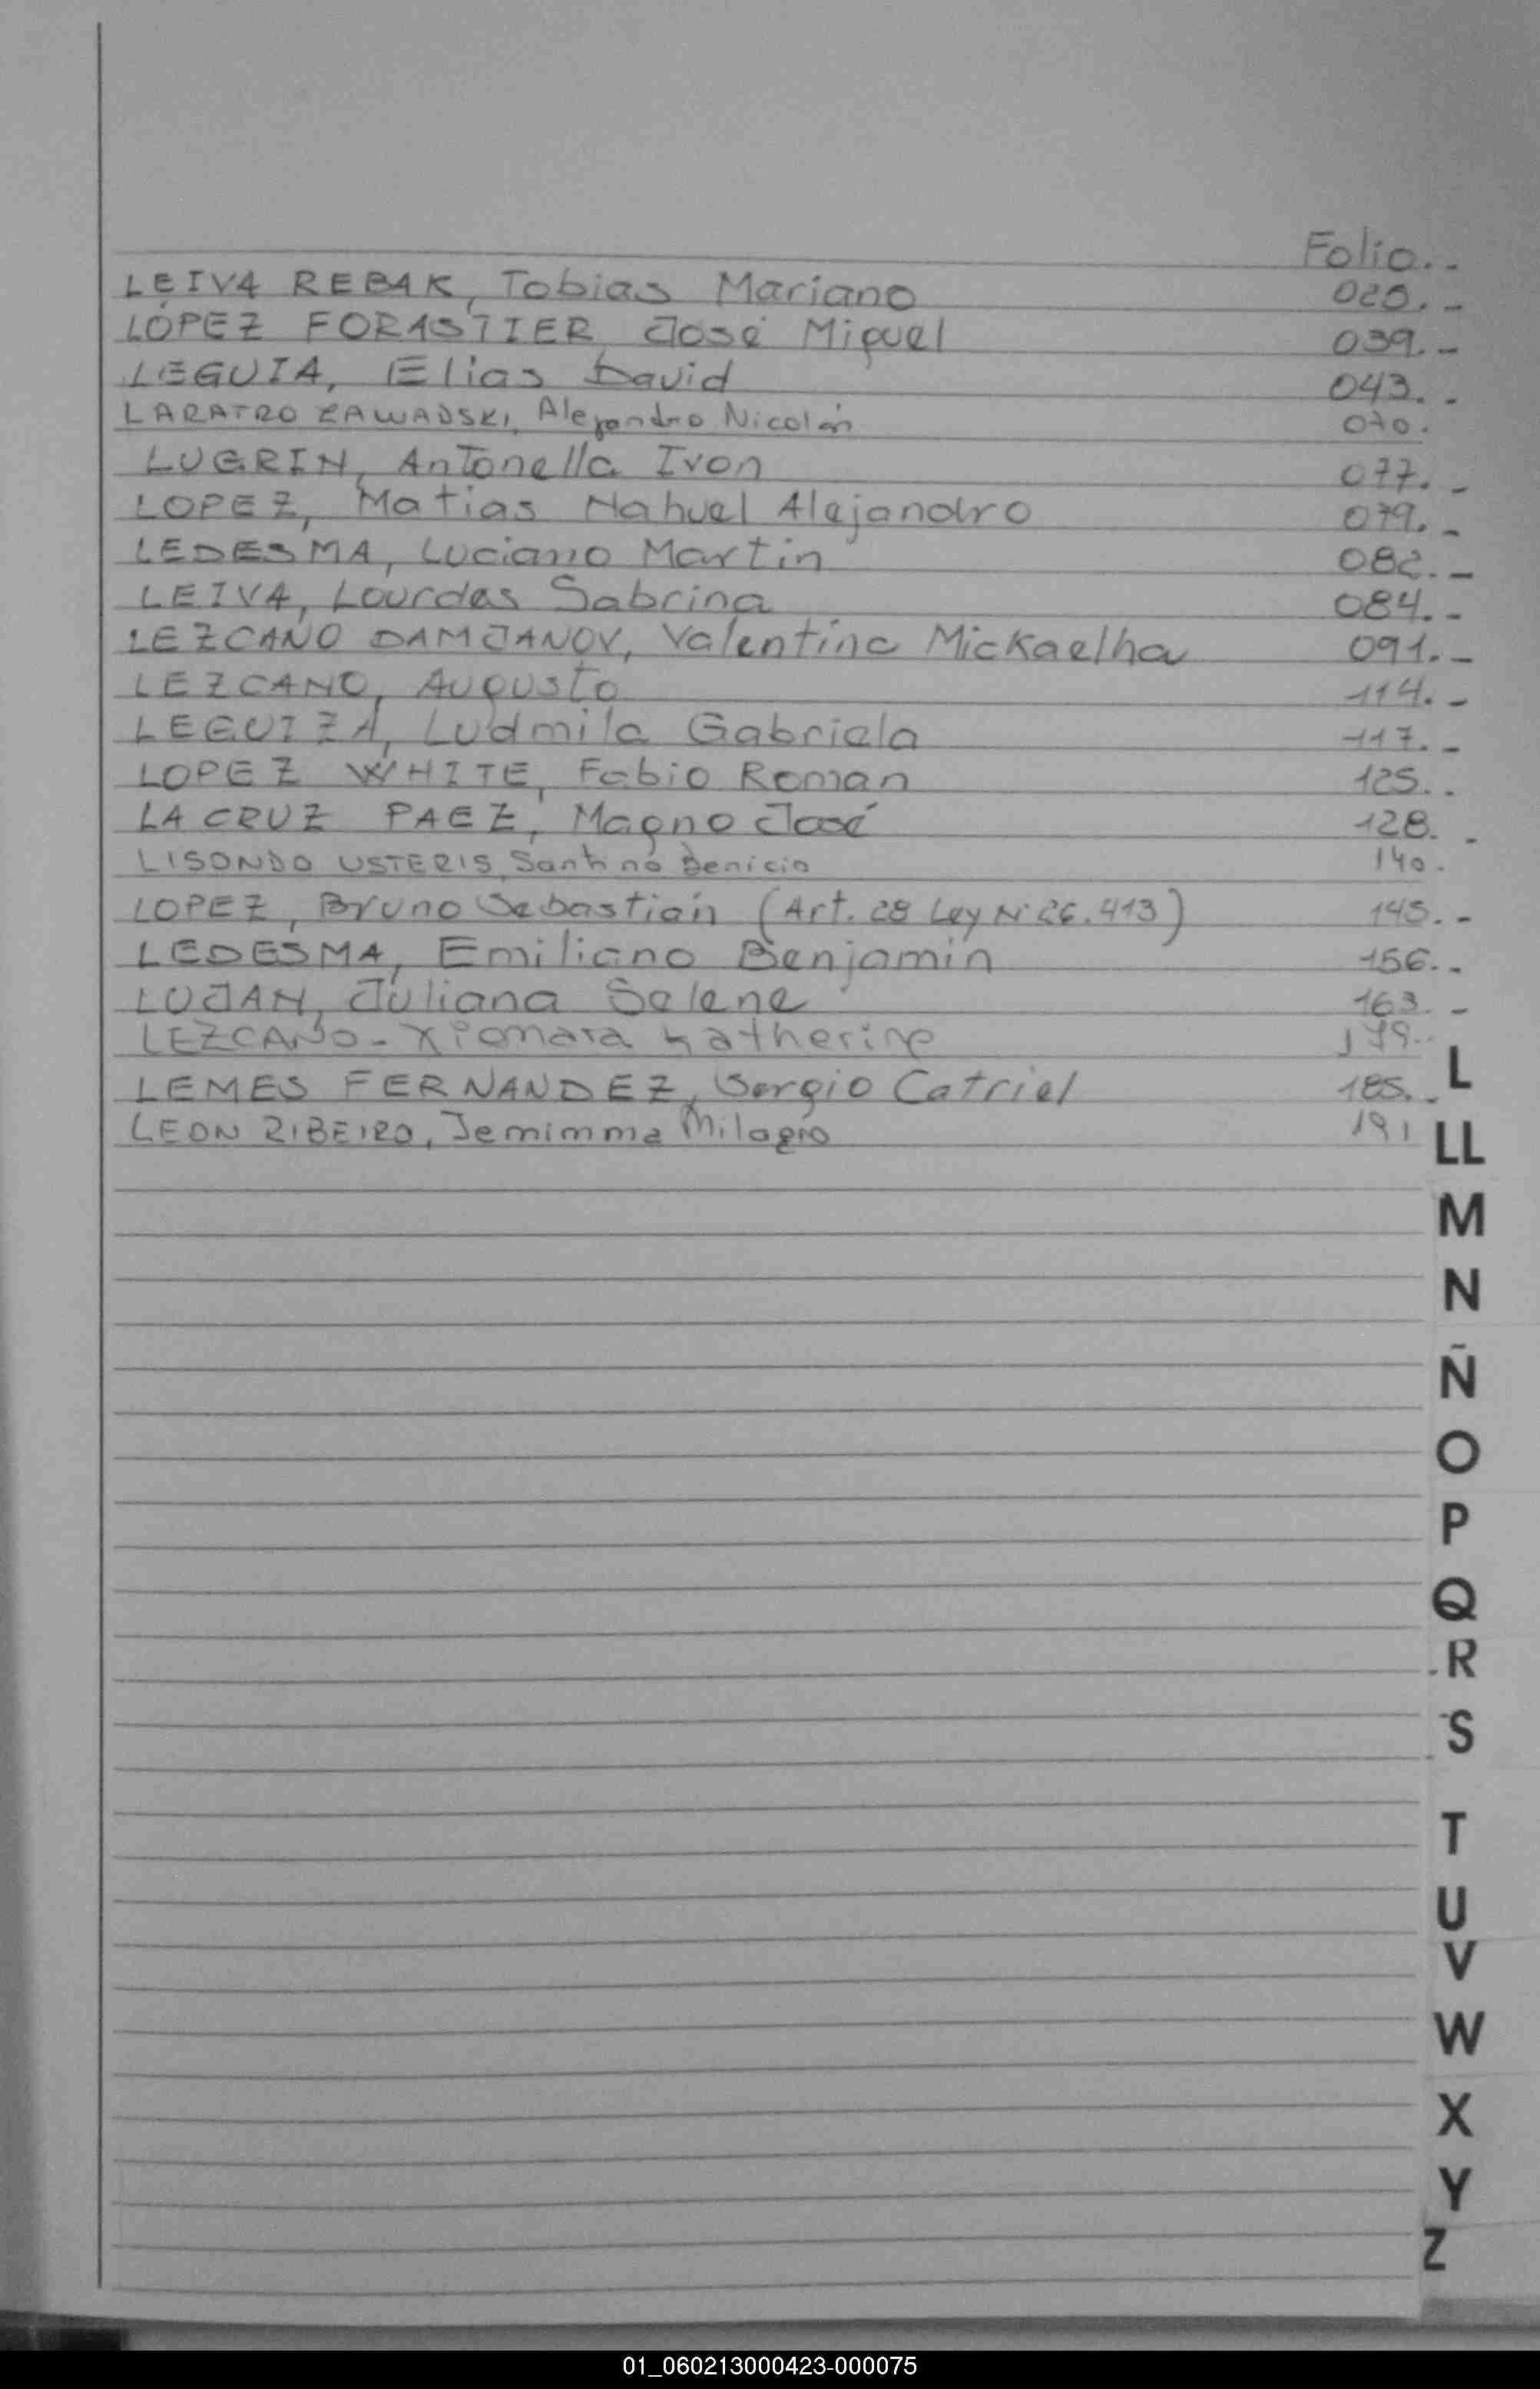 Folio.-
LEIVA REBAK, Tobias Mariano 020.-
LOPEZ FORASTIER, José Miguel 039.-
LEGUIA, Elias David 043.-
LARATRO ZAWADSKI, Alejandro Nicolás 070.
LUGRIN, Antonella Ivon 077.-
LOPEZ, Matias Nahuel Alejandro 079.-
LEDESMA, Luciano Martin 082.-
LEIVA, Lourdes Sabrina 084.-
LEZCANO DAMJANOV, Valentina Mickaelha 091.-
LEZCANO, Augusto 114.-
LEGUIZA, Ludmila Gabriela 117.-
LOPEZ WHITE, Fabio Roman 125.-
LA CRUZ PAEZ, Magno José 128.-
LISONDO USTERIS, Santino Benicio 140.
LOPEZ, Bruno Sebastian (Art. 28 Ley N° 26.413) 145.-
LEDESMA, Emiliano Benjamin 156.-
LUJAN, Juliana Selene 163.-
LEZCANO - Xiomara Katherine 179.-
L
LEMES FERNANDEZ, Sergio Catriel 185.-
LEON RIBEIRO, Jemimma Milagro 191
LL
M
N
Ñ
O
P
Q
R
S
T
U
V
W
X
Y
Z
01_060213000423-000075